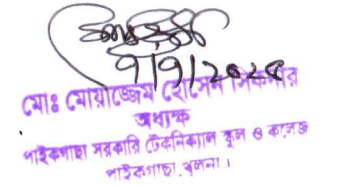 ৭/৭/২০২৫
মোঃ মোয়াজ্জেম হোসেন সিকদার
অধ্যক্ষ
পাইকগাছা সরকারি টেকনিক্যাল স্কুল ও কলেজ
পাইকগাছা, খুলনা।